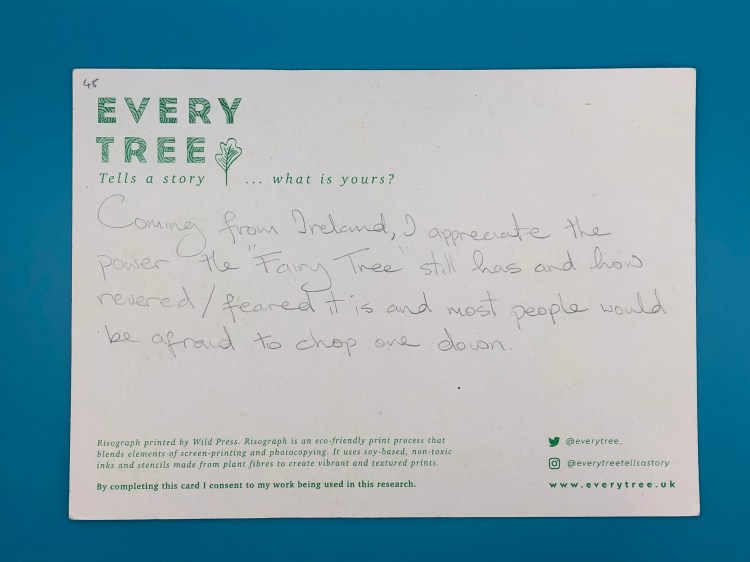 45
EVERY
TREE
Tells a story ... what is yours?
Coming from Ireland, I appreciate the
power the "Fairy Tree" still has and how
revered/feared it is and most people would
be afraid to chop one down.
Risograph printed by Wild Press. Risograph is an eco-friendly print process that
blends elements of screen-printing and photocopying. It uses soy-based, non-toxic
inks and stencils made from plant fibres to create vibrant and textured prints.
By completing this card I consent to my work being used in this research.
@everytree_
@everytreetellsastory
www.everytree.uk